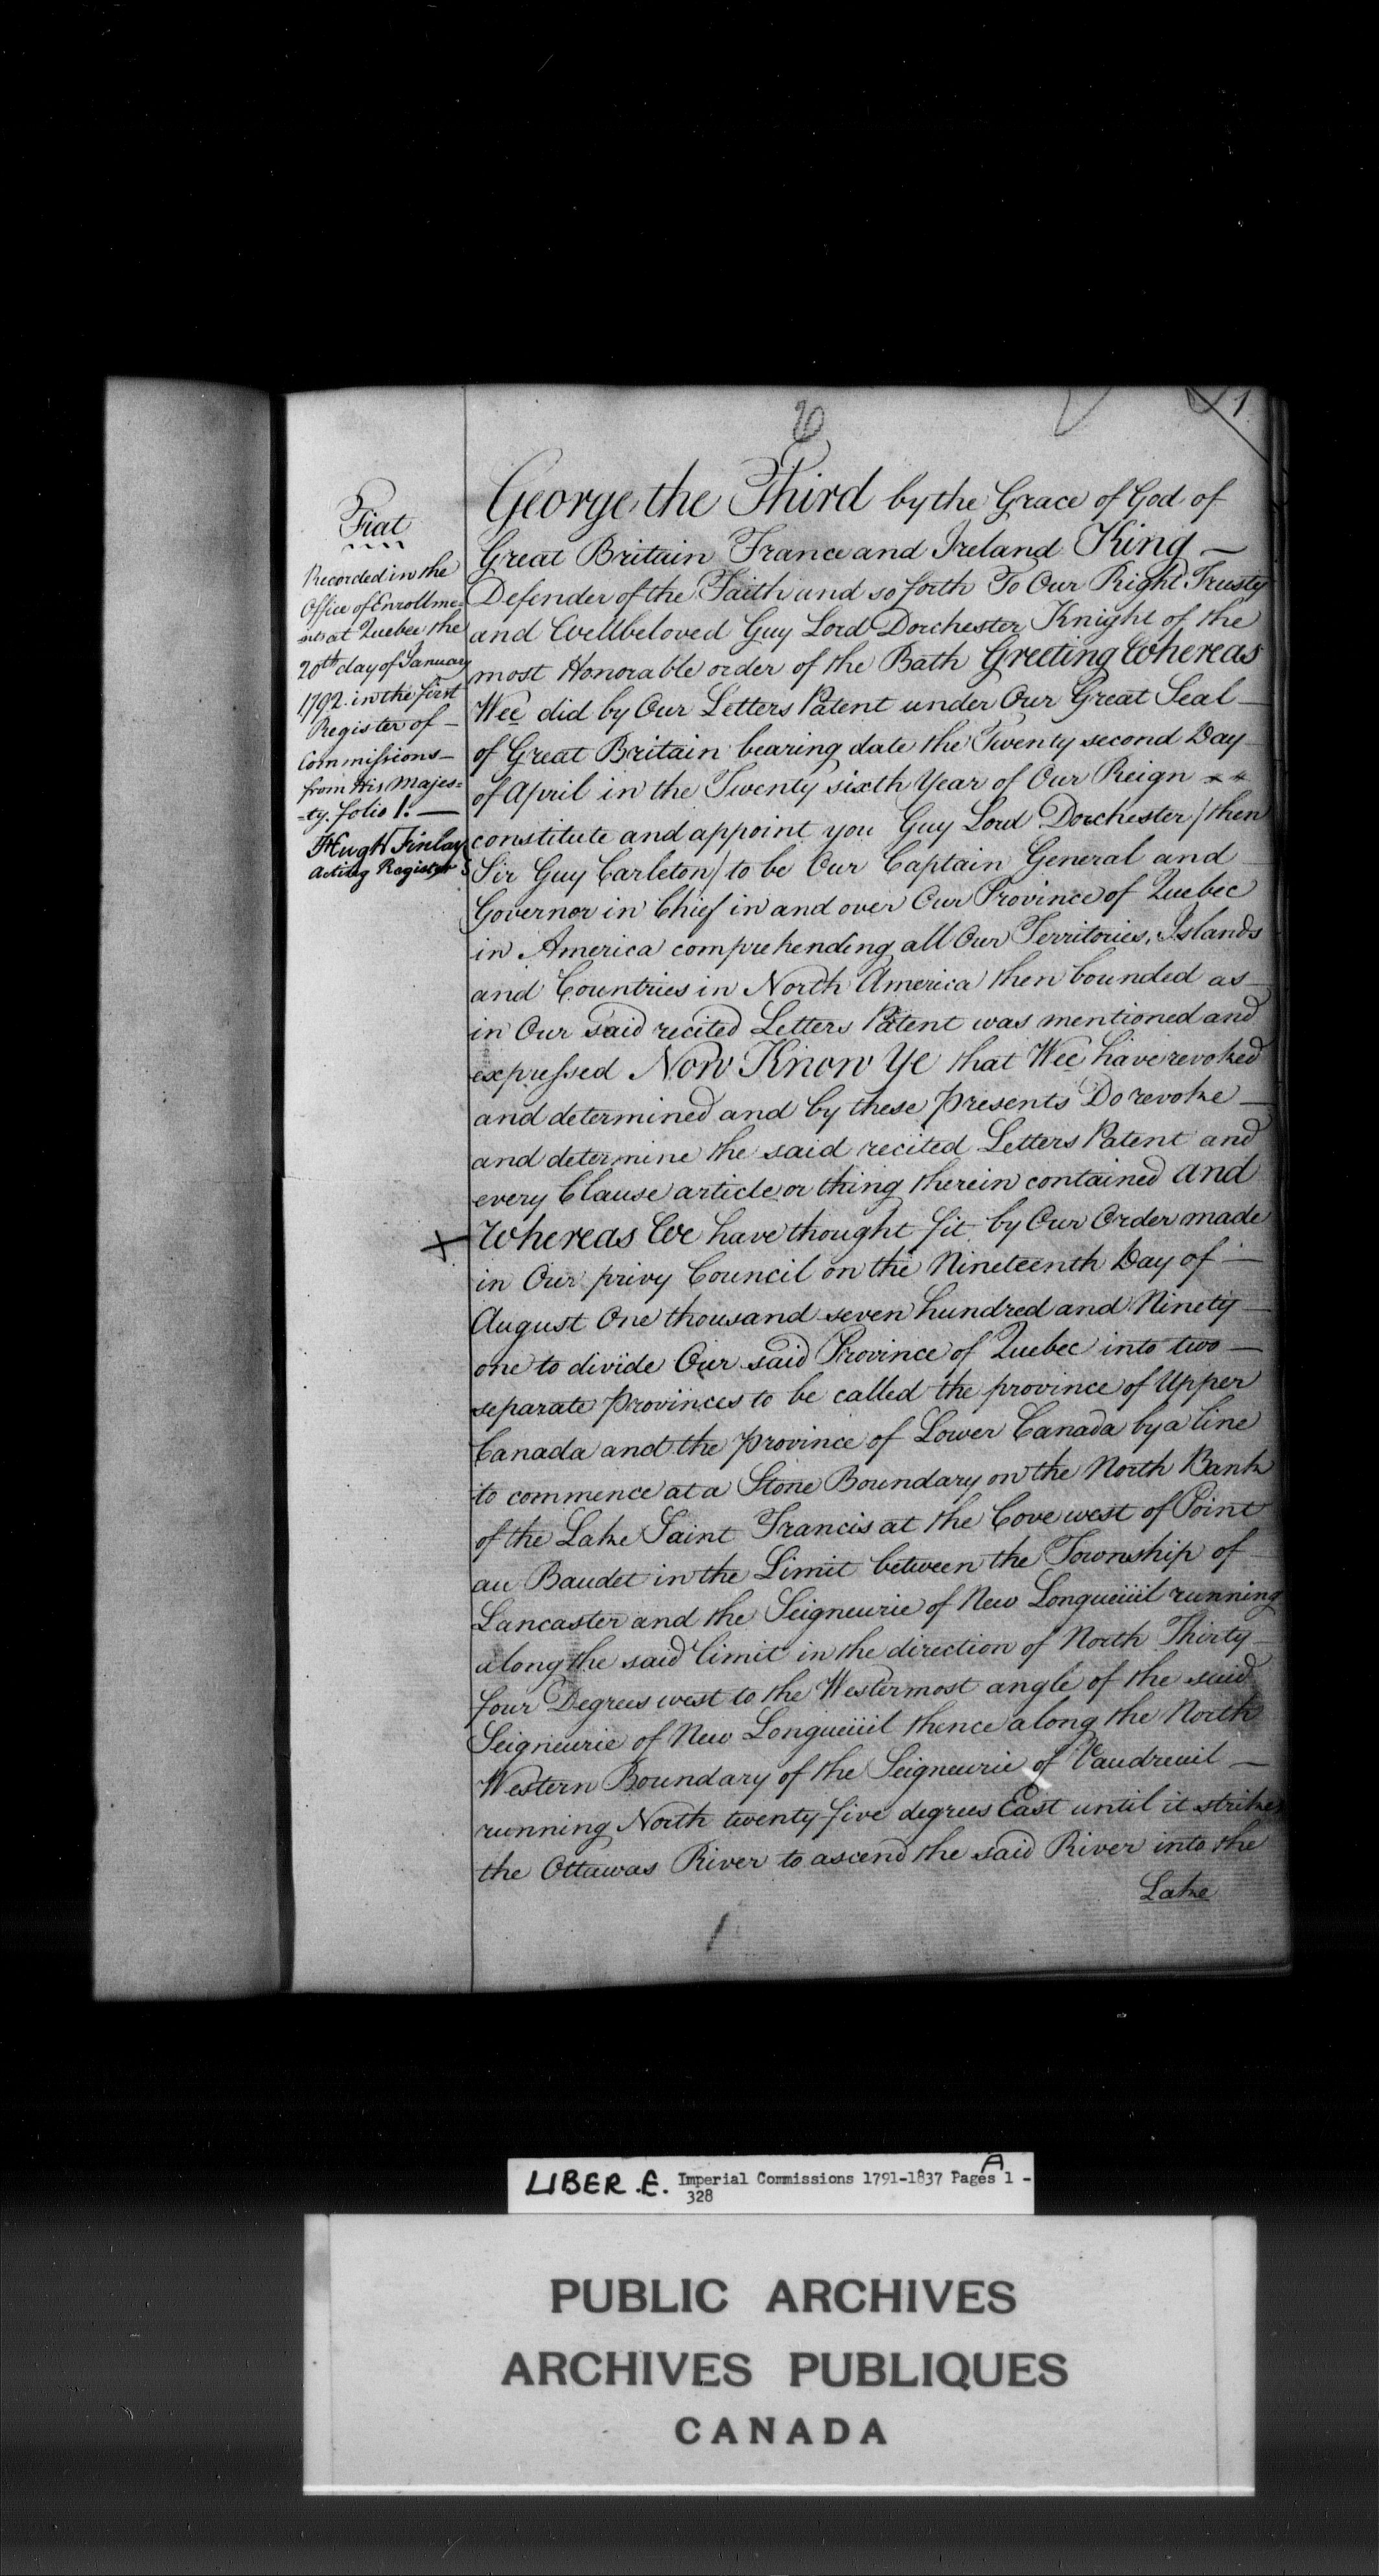 1
Fiat
Recorded in the
Office of Enrollme=
nts at Quebec the
20th day of January
1792. in the first
Register of —
Commissions —
from His Majes=
=ty. folio 1. —
Hugh Finlay
Acting Registr
George the Third by the Grace of God of
Great Britain France and Ireland King —
Defender of the Faith and so forth To Our Right Trusty
and Wellbeloved Guy Lord Dorchester Knight of the
most Honorable order of the Bath Greeting Whereas
Wee did by Our Letters Patent under Our Great Seal —
of Great Britain bearing date the Twenty second Day —
of April in the Twenty sixth Year of Our Reign x x
constitute and appoint you Guy Lord Dorchester / then
Sir Guy Carleton / to be Our Captain General and —
Governor in Chief in and over Our Province of Quebec
in America comprehending all Our Territories, Islands
and Countries in North America then bounded as —
in Our said recited Letters Patent was mentioned and
expressed Now Know Ye that Wee have revoked
and determined and by these presents Do revoke —
and determine the said recited Letters Patent and
every Clause article or thing therein contained and
X Whereas We have thought fit by Our Order made
in Our privy Council on the Nineteenth Day of —
August One thousand seven hundred and Ninety —
one to divide Our said Province of Quebec into two —
separate provinces to be called the province of Upper
Canada and the province of Lower Canada by a line
to commence at a Stone Boundary on the North Bank
of the Lake Saint Francis at the Cove west of Point
au Baudet in the Limit between the Township of —
Lancaster and the Seigneurie of New Longueiiil running
along the said limit in the direction of North Thirty —
four Degrees west to the Westermost angle of the said
Seigneurie of New Longueiiil thence along the North
Western Boundary of the Seigneurie of Vaudreuil —
running North twenty five degrees East until it strikes
the Ottawas River to ascend the said River into the
Lake
1
LIBER E. Imperial Commissions 1791-1837 Pages A 1 -
328
PUBLIC ARCHIVES
ARCHIVES PUBLIQUES
CANADA